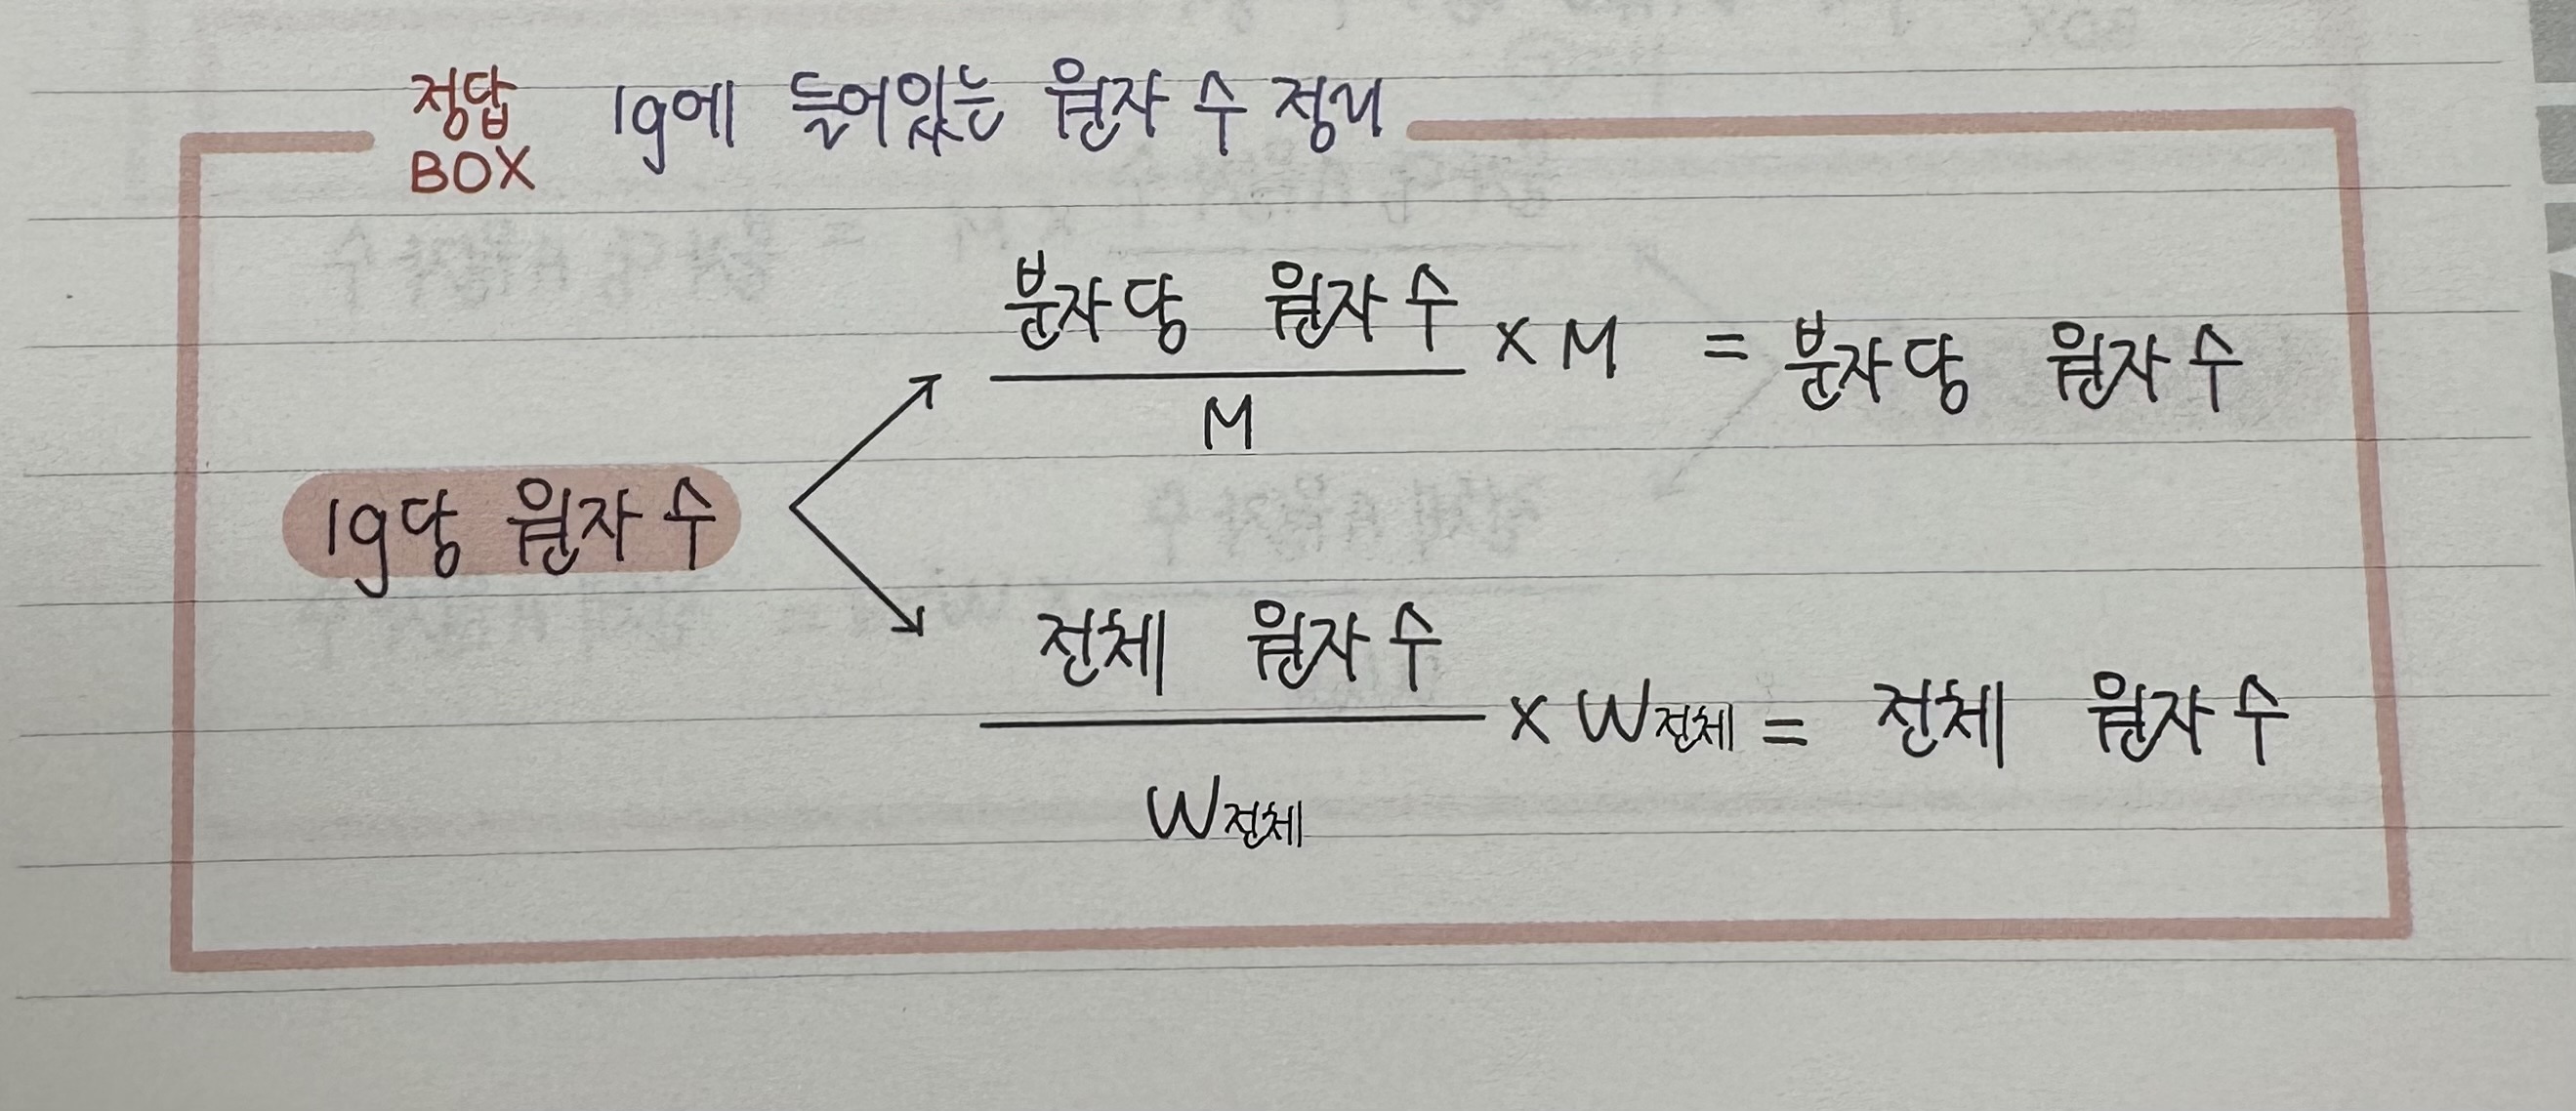 정답 1g에 들어있는 원자 수 정리
BOX
분자 당 원자 수 × M = 분자 당 원자 수
M
1g당 원자 수
전체 원자 수 × W전체 = 전체 원자 수
W전체